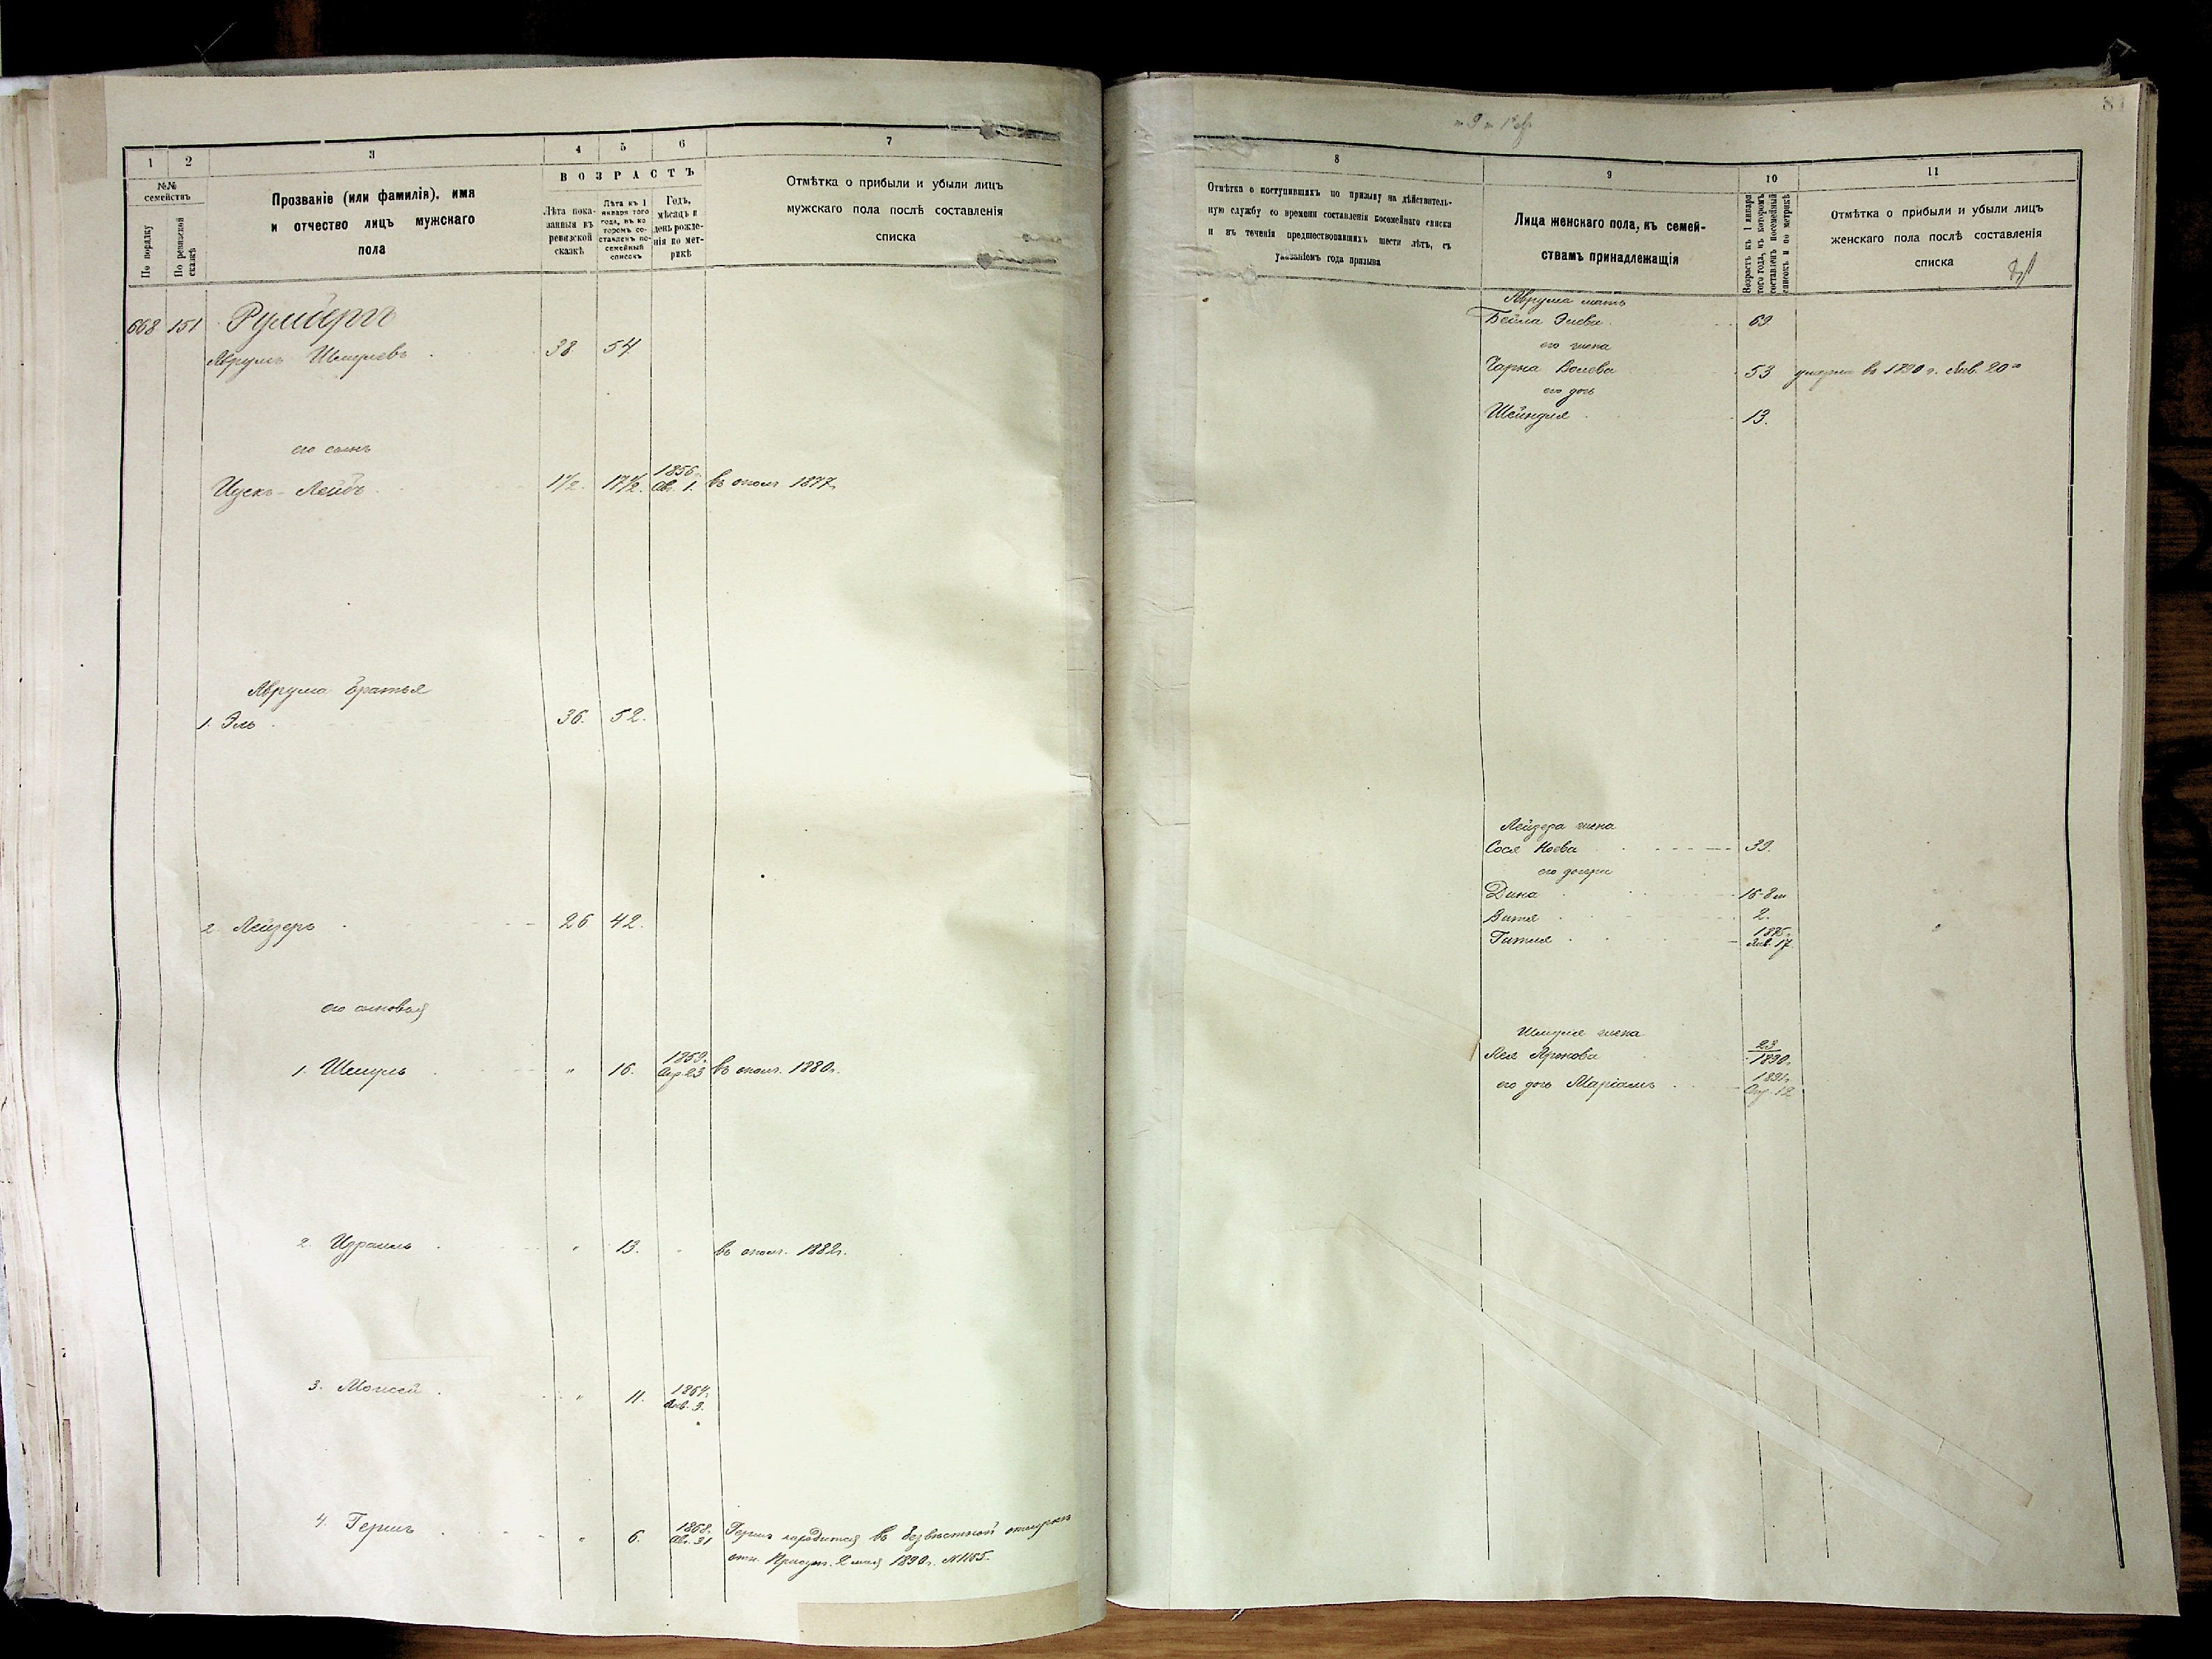 1 2 3 4 5 6 7
№№ семействъ
По порядку
По ревизской сказкѣ
Прозваніе (или фамилія), имя
и отчество лицъ мужскаго
пола
ВОЗРАСТЪ
Лѣта пока-
занныя въ
ревизской
сказкѣ
Лѣта къ 1
января того
года, въ ко
торомъ со-
ставленъ по-
семейный
списокъ
Годъ,
мѣсяцъ и
день рожде-
нія по мет-
рикѣ
Отмѣтка о прибыли и убыли лицъ
мужскаго пола послѣ составленія
списка
668 151 Румбергъ
Аврумъ Шмуелевъ 38 54
его сынъ
Ицекъ-Лейбъ 1½ 17½ 1856г. Ав. 1. въ ополч. 1877г.
Аврума братья
1. Эль 36. 52.
2. Лейзеръ 26 42.
его сыновья
1. Шмуль " 16. 1859г. Апр. 23 въ ополч. 1880г.
2. Израиль " 13. " въ ополч. 1882г.
3. Мовсей " 11. 1864г. Янв. 9.
4. Гершъ " 6. 1868г. Ав. 31 Гершъ находится въ безвѣстной отлучкѣ
отн. Присут. 2 мая 1890г. №1105.
81
8 9 10 11
Отмѣтка о поступившихъ по призыву на дѣйствитель-
ную службу со времени составленія посемейнаго списка
и въ теченіи предшествовавшихъ шести лѣтъ, съ
указаніемъ года призыва
Лица женскаго пола, къ семей-
ствамъ принадлежащія
Возрастъ къ 1 января
того года, въ которомъ
составленъ посемейный
списокъ и по метрикѣ
Отмѣтка о прибыли и убыли лицъ
женскаго пола послѣ составленія
списка
Аврума мать
Бейла Элева 69
его жена
Чарна Волева 53 умерла въ 1890г. Янв. 20го
его дочь
Шейндля 13.
Лейзера жена
Сося Ноева 39.
его дочери
Дина 16-8 м
Витя 2.
Гитля 1875г. Янв. 17.
Шмуля жена
Лея Аронова 23 1890г.
его дочь Маріамъ 1891г. Апр. 12